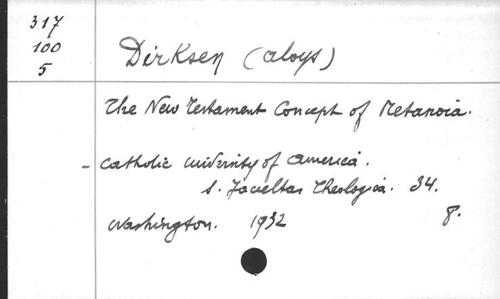 317
100
5
Dirksen (Aloys)
The New Testament Concept of Metanoia.
- Catholic University of America.
S. Facultas Theologica. 34.
Washington. 1932 8.